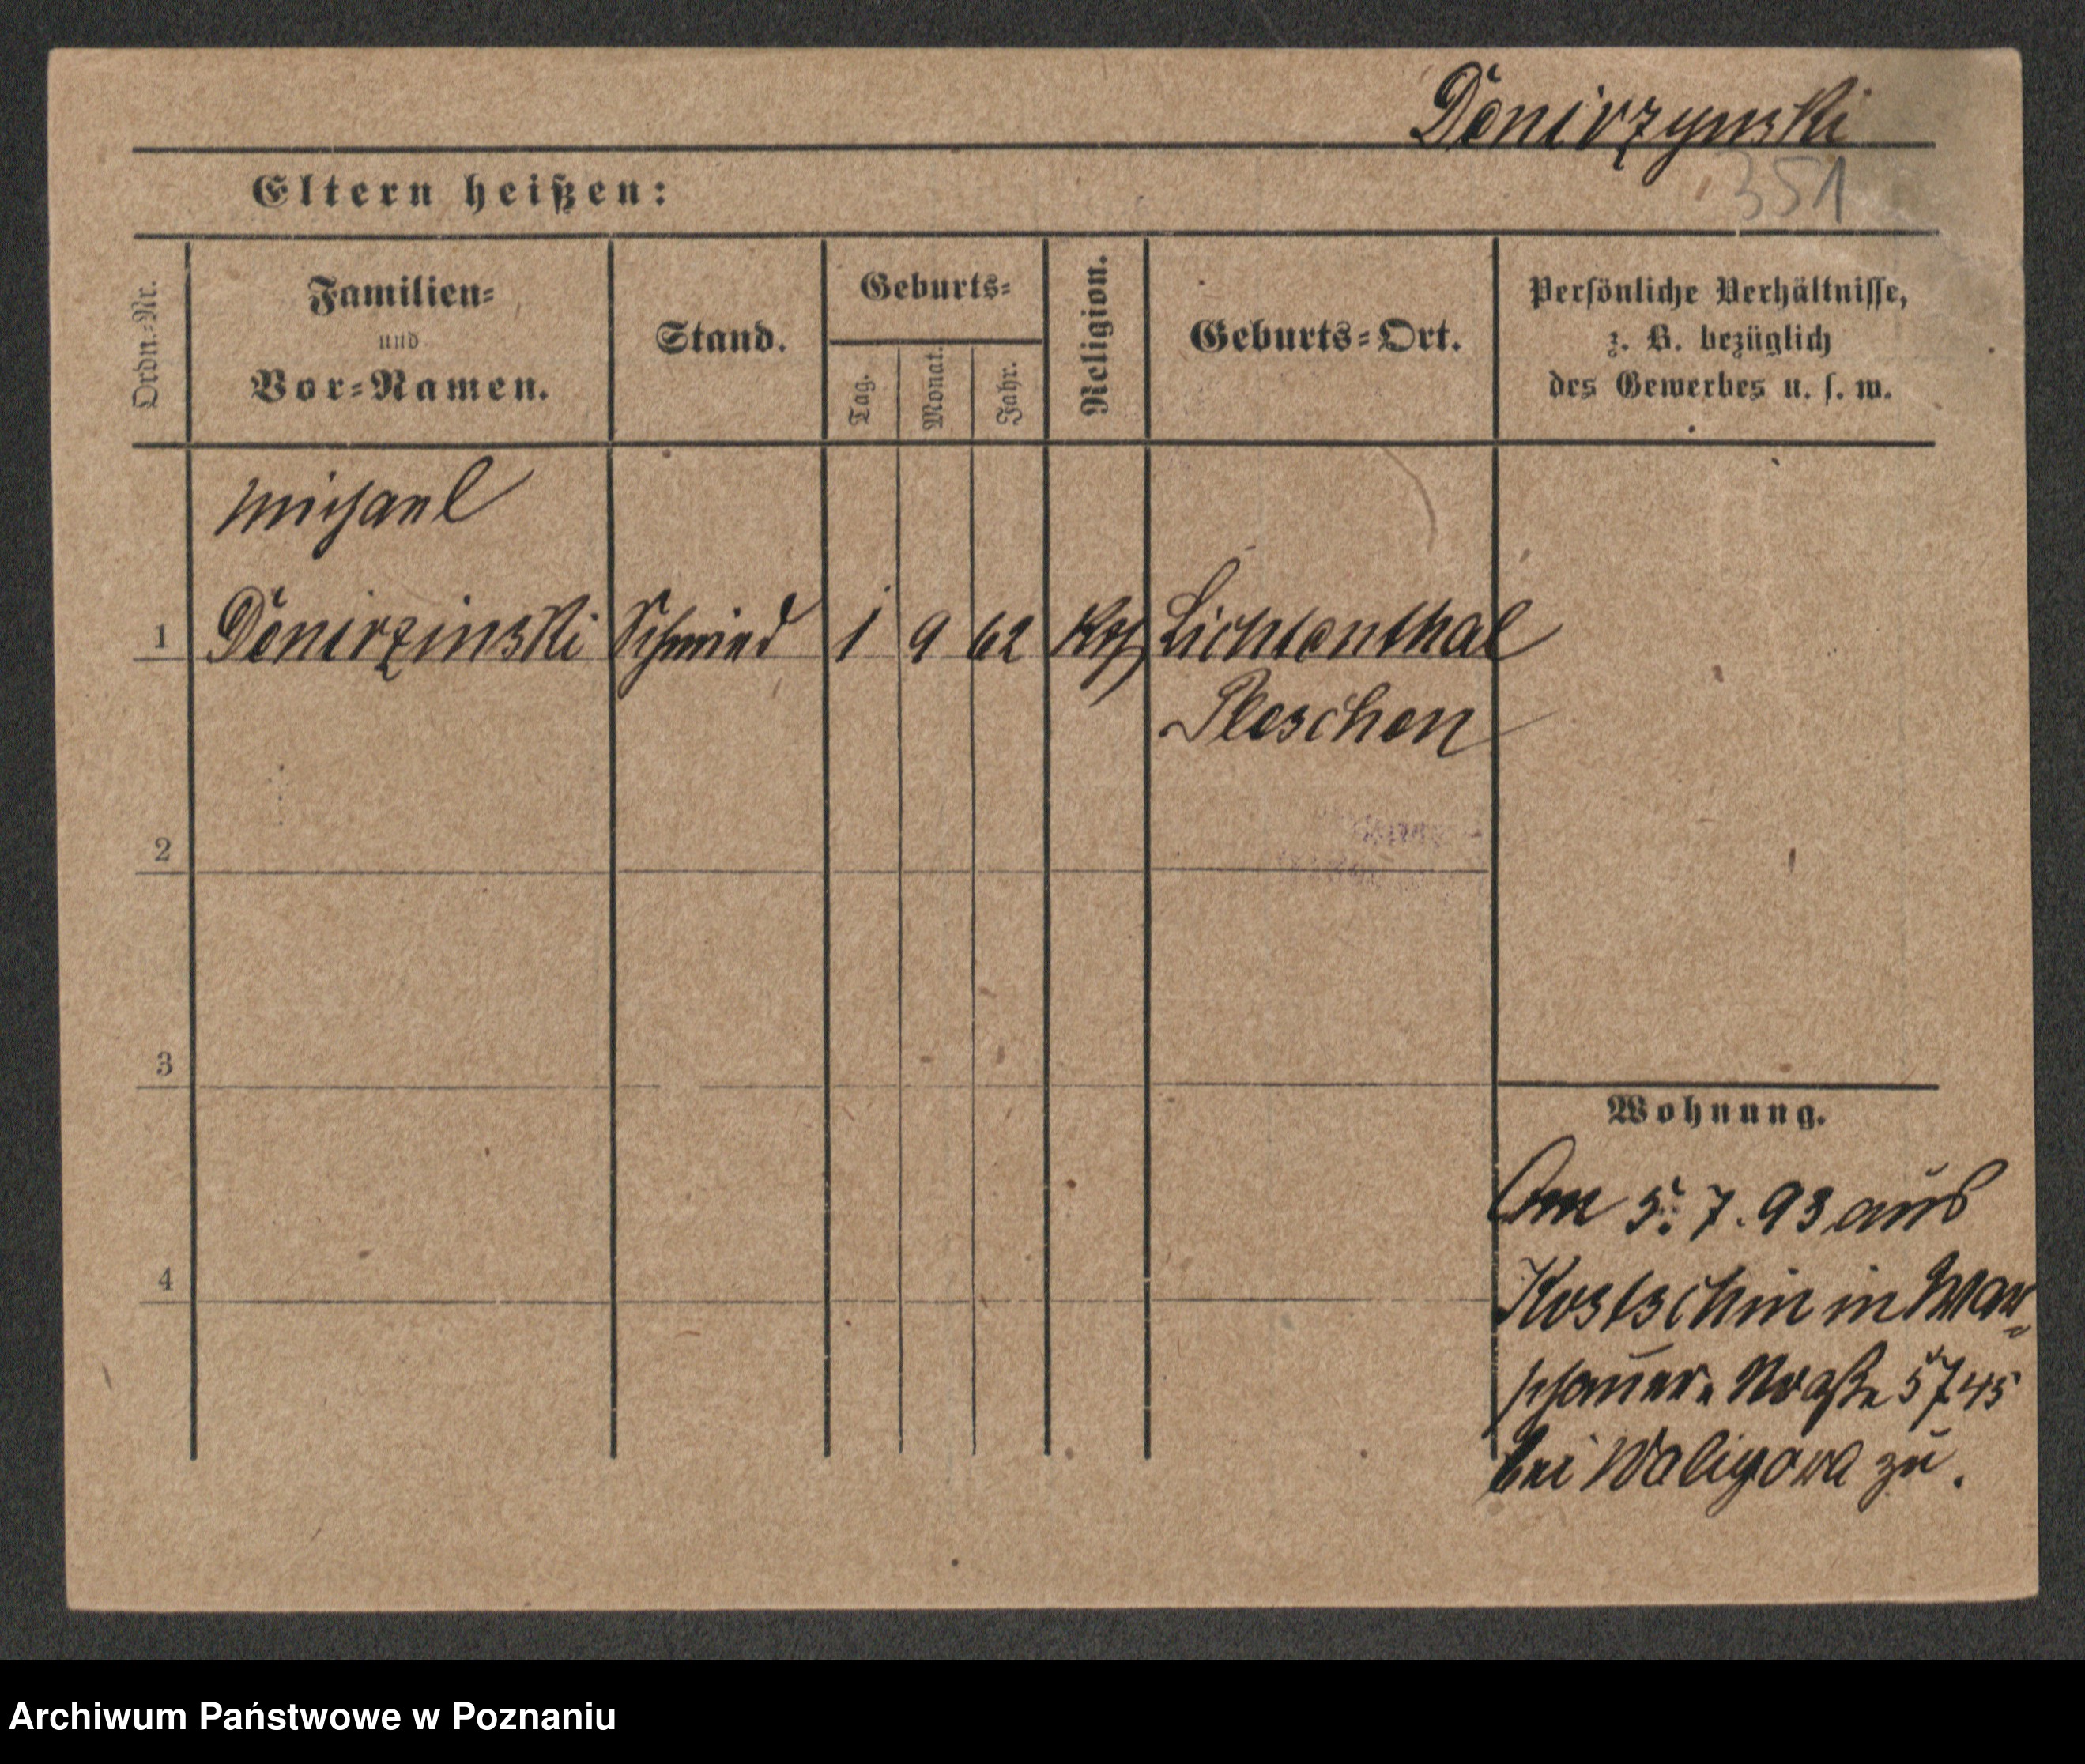 Donirzynski
351
Eltern heißen:
Ordn.-Nr.
Familien-
und
Vor-Namen.
Stand.
Geburts-
Tag.
Monat.
Jahr.
Religion.
Geburts-Ort.
Persönliche Verhältnisse,
z. B. bezüglich
des Gewerbes u. s. w.
Michael
1 Donirzinski Schmied 1 9 62 Kth Lichtenthal
Pleschen
2
3
4
Wohnung.
Am 5. 7. 93 aus
Kostschin in War-
schauer Straße 5745
bei Waligora zu.
Archiwum Państwowe w Poznaniu